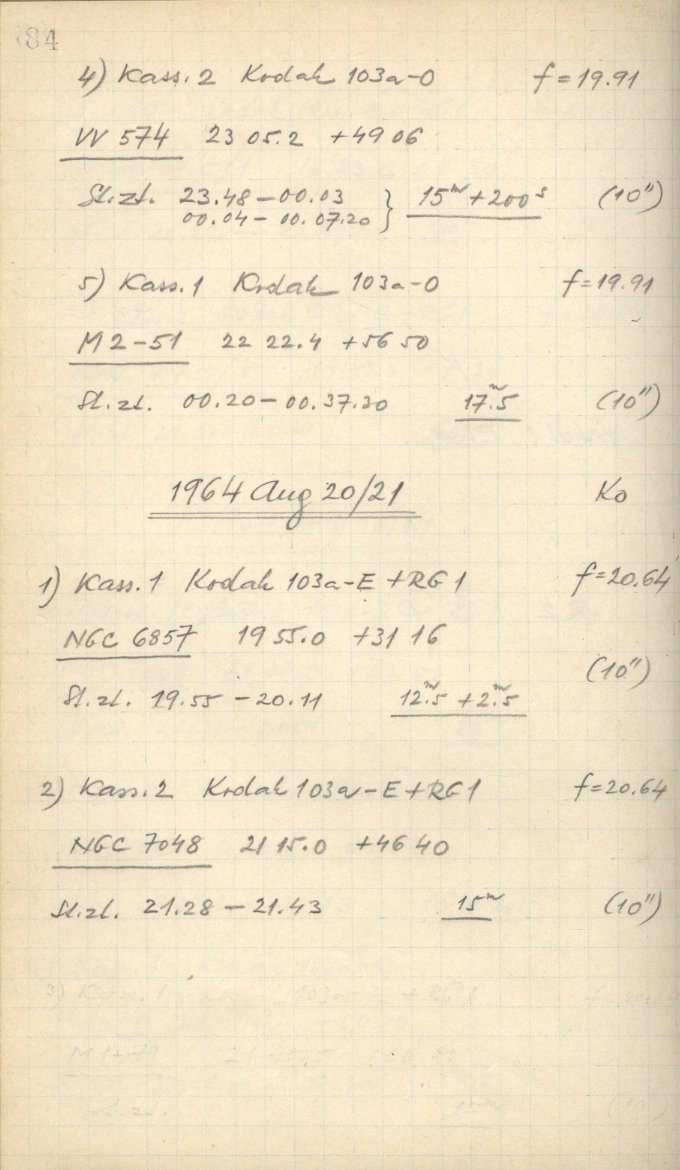 84
4) Kass. 2 Kodak 103a-O f = 19.91
VV 574 23 05.2 +49 06
St.zt. 23.48 – 00.03 } 15ᵐ + 200ˢ (10")
00.04 – 00.07.20
5) Kass. 1 Kodak 103a-O f = 19.91
M 2-51 22 22.4 +56 50
St.zt. 00.20 – 00.37.30 17ᵐ.5 (10")
1964 Aug 20/21 Ko
1) Kass. 1 Kodak 103a-E + RG 1 f = 20.64
NGC 6857 19 55.0 +31 16
(10")
St.zt. 19.55 – 20.11 12ᵐ.5 + 2ᵐ.5
2) Kass. 2 Kodak 103a-E + RG 1 f = 20.64
NGC 7048 21 15.0 +46 40
St.zt. 21.28 – 21.43 15ᵐ (10")
3) Kass. 1 103a-E + RG 1